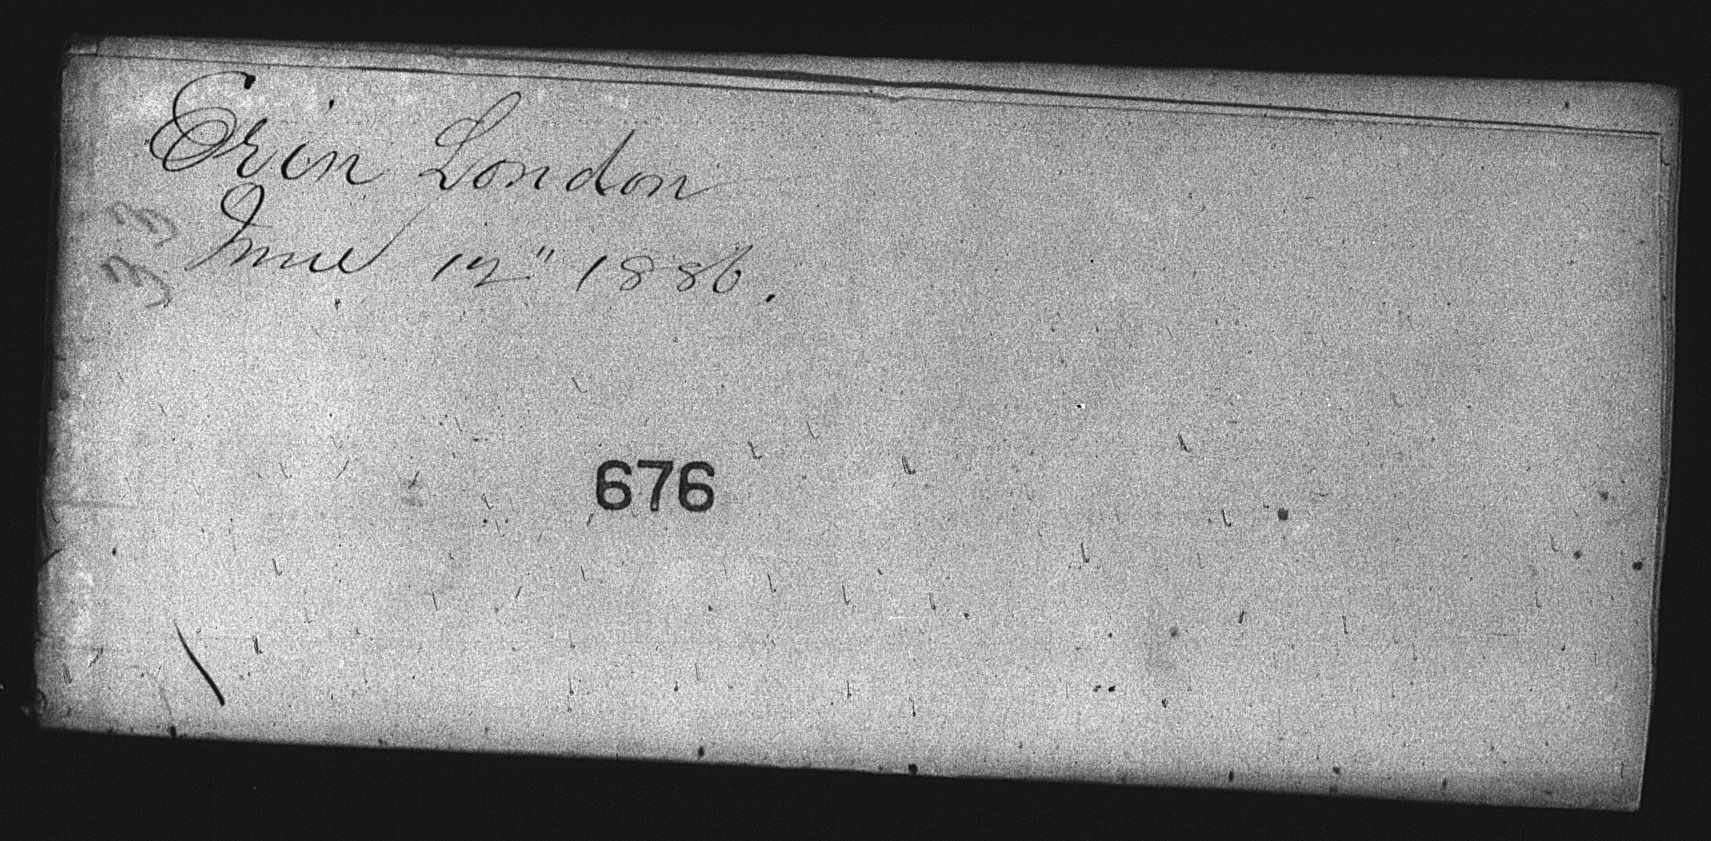 Erin London
June 12" 1886.
33
676